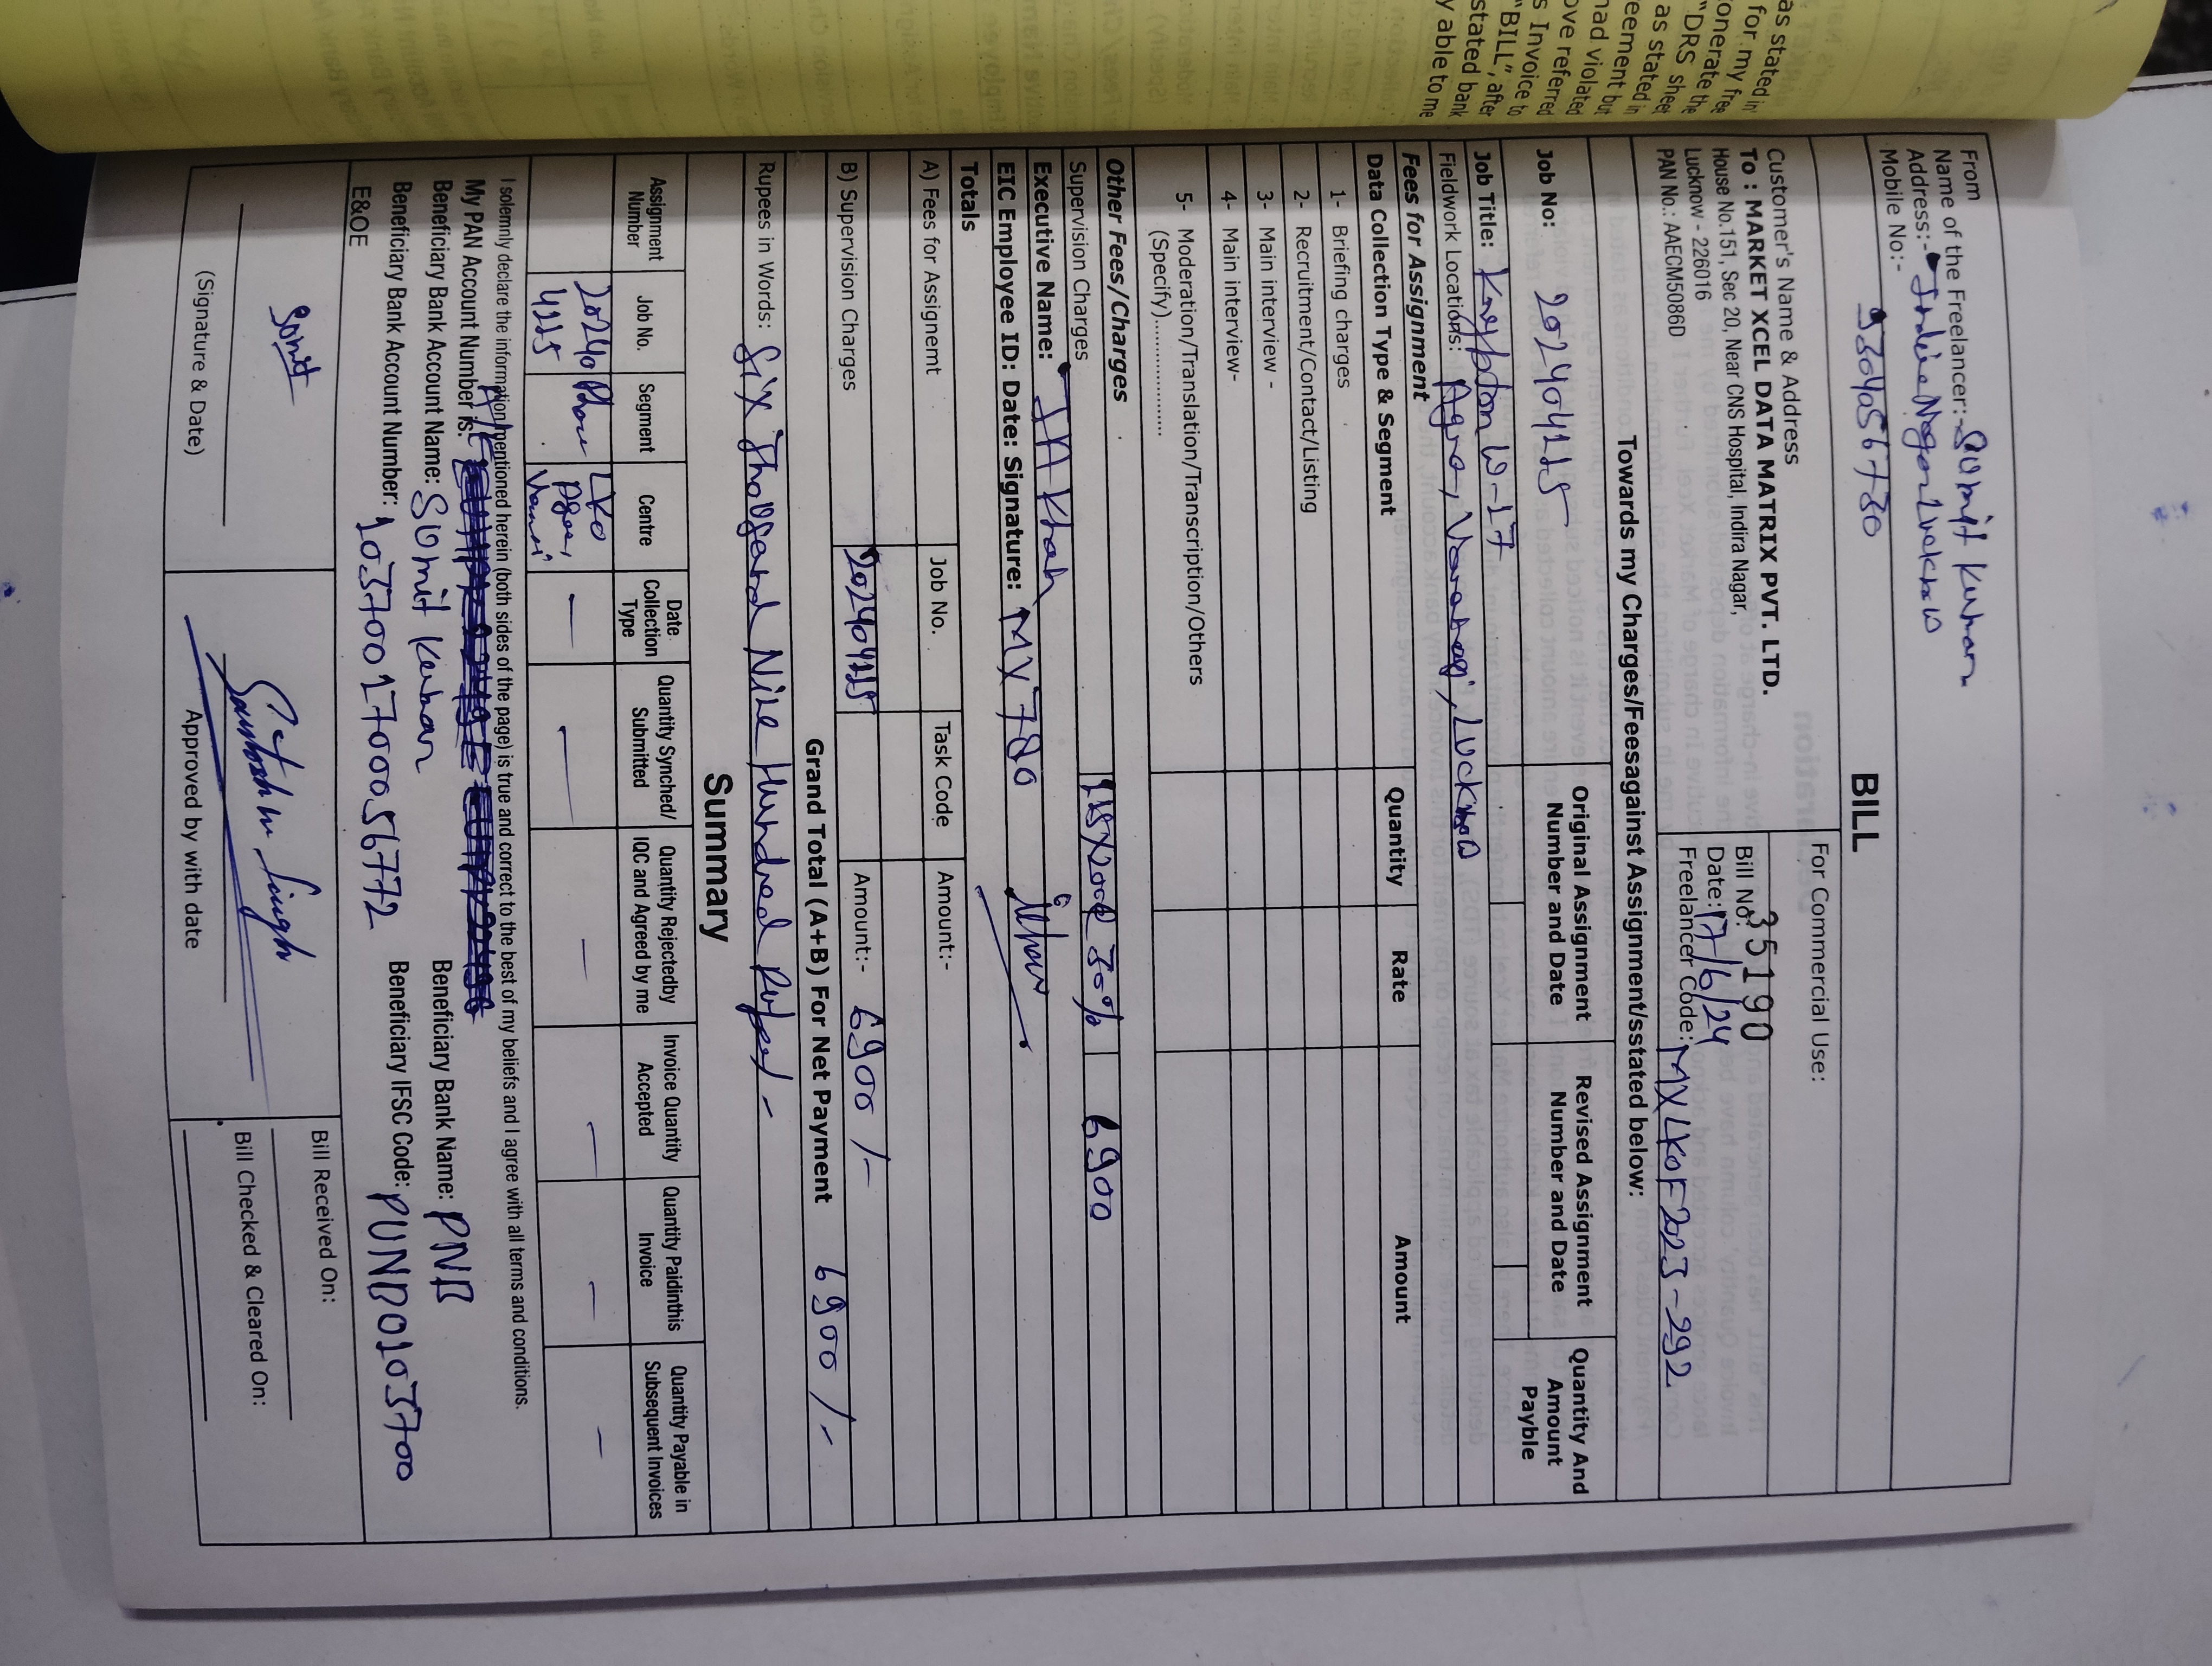 as stated in
for my free
onerate the
"DRS sheet
as stated in
reement but
had violated
ove referred
s Invoice to
"BILL", after
stated bank
y able to me
From
Name of the Freelancer:- Sumit Kumar
Address:- Indira Nagar Lucknow
Mobile No:-
BILL
Customer's Name & Address
To : MARKET XCEL DATA MATRIX PVT. LTD.
House No.151, Sec 20, Near CNS Hospital, Indira Nagar,
Lucknow - 226016
PAN No.: AAECM5086D
For Commercial Use:
Bill No: 35190
Date: 17/6/24
Freelancer Code: MXLKOF2023-292
Towards my Charges/Feesagainst Assignment/sstated below:
Job No: 202404115
Original Assignment Number and Date
Revised Assignment Number and Date
Quantity And Amount Payble
Job Title: Krypton W-17
Fieldwork Locations: Agra, Varanasi, Lucknow
Fees for Assignment
Data Collection Type & Segment Quantity Rate Amount
1- Briefing charges
2- Recruitment/Contact/Listing
3- Main interview -
4- Main interview-
5- Moderation/Translation/Transcription/Others
(Specify)................
Other Fees/Charges
Supervision Charges 115X200@ 30% 6900
Executive Name: JA Khan
EIC Employee ID: Date: Signature: MX780
Totals
A) Fees for Assignemt Job No. Task Code Amount:-
B) Supervision Charges 202404115 Amount:- 6900/-
Grand Total (A+B) For Net Payment 6900/-
Rupees in Words: Six Thousand Nine Hundred Rupees/-
Summary
Assignment Number
Job No.
Segment
Centre
Date Collection Type
Quantity Synched/ Submitted
Quantity Rejectedby IQC and Agreed by me
Invoice Quantity Accepted
Quantity Paidinthis Invoice
Quantity Payable in Subsequent Invoices
20240 4115 LKO Agra,
I solemnly declare the information mentioned herein (both sides of the page) is true and correct to the best of my beliefs and I agree with all terms and conditions.
My PAN Account Number is:
Beneficiary Bank Account Name: Sumit Kumar Beneficiary Bank Name: PNB
Beneficiary Bank Account Number: 1037001700056772 Beneficiary IFSC Code: PUNB0103700
E&OE
Sumit
(Signature & Date)
Santosh Singh
Approved by with date
Bill Received On:
Bill Checked & Cleared On: